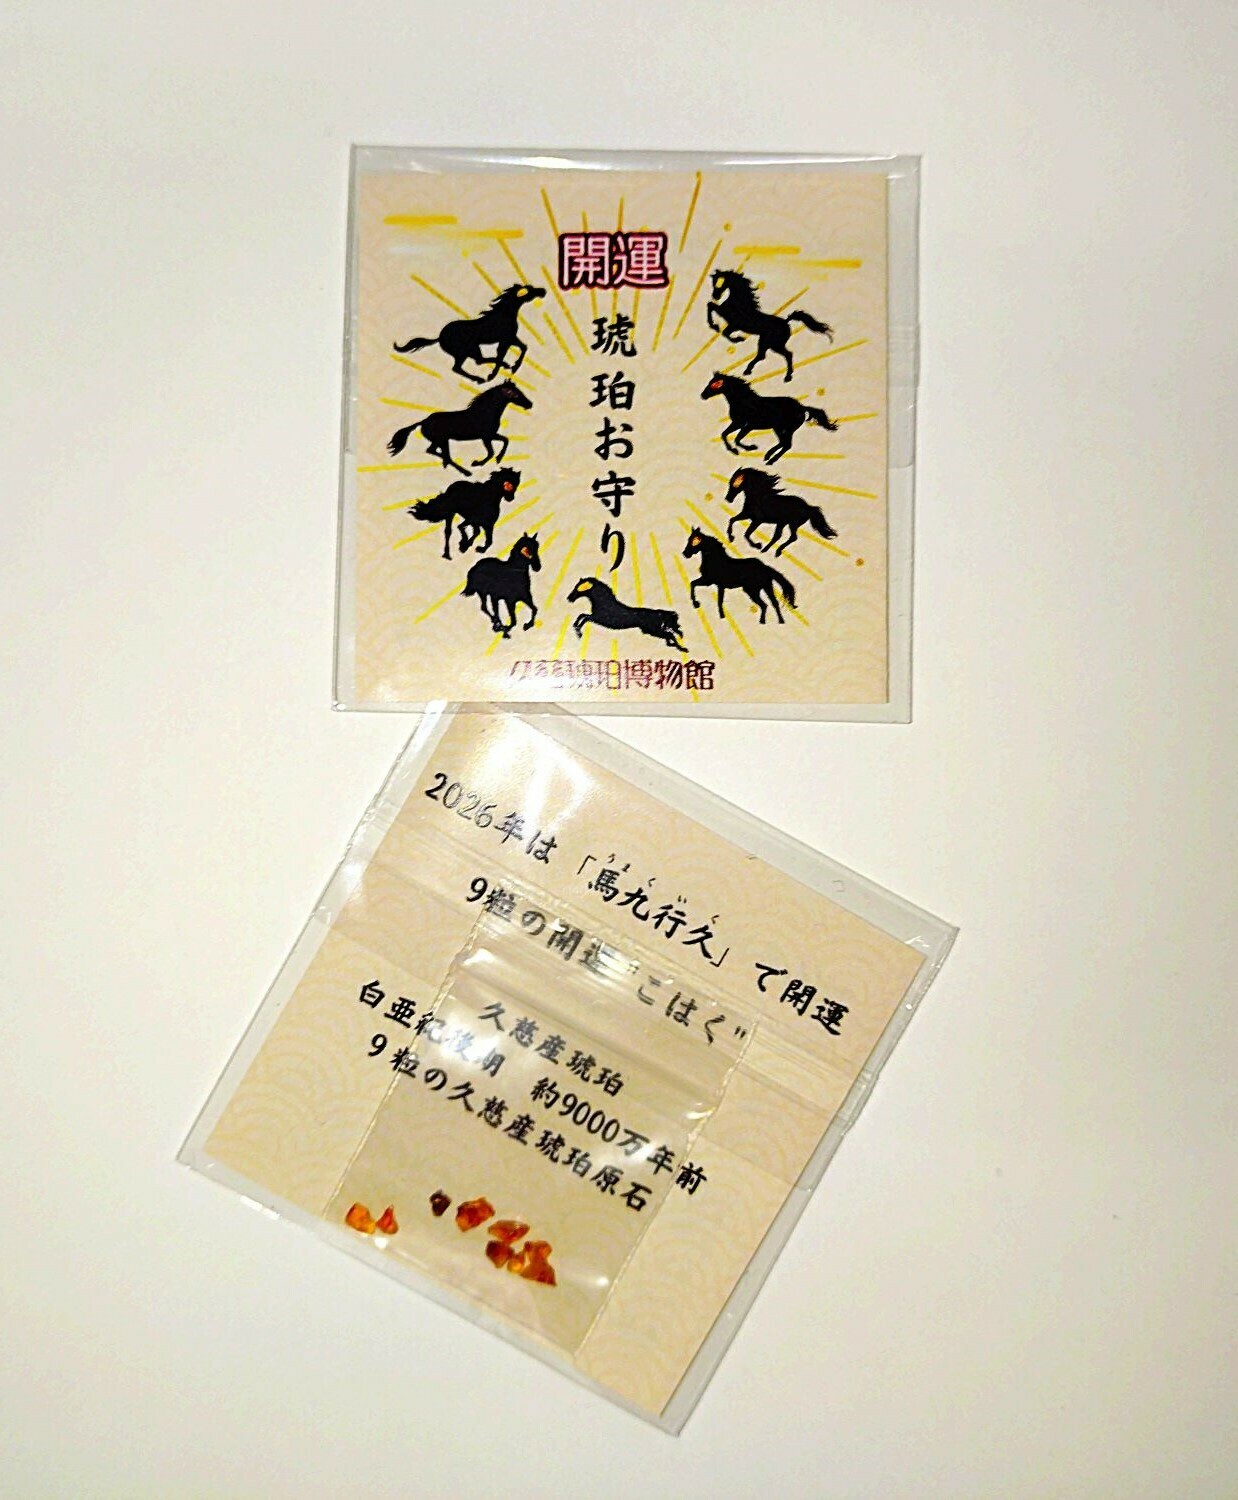 開運
琥珀お守り
久慈琥珀博物館
2026年は「馬九行久」で開運
うまくいく
9粒の開運"こはく"
久慈産琥珀
白亜紀後期 約9000万年前
9粒の久慈産琥珀原石